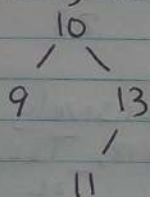 10
9 13
11